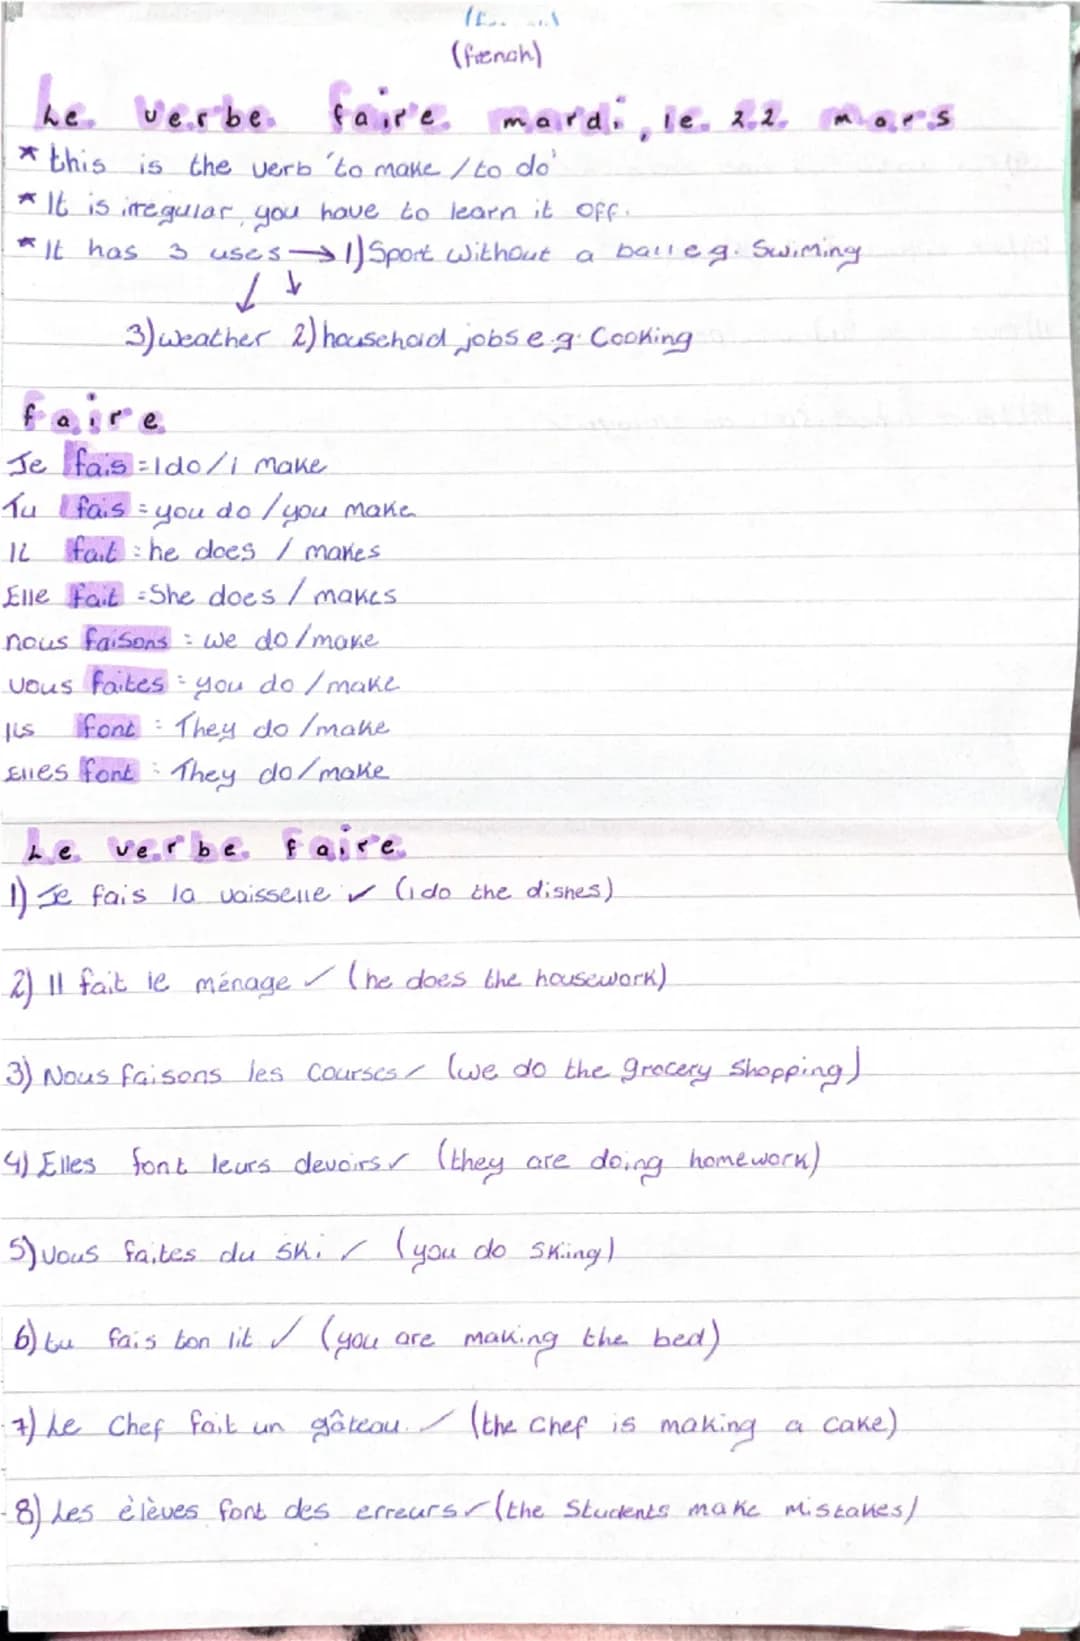 (french)
Le verbe faire mardi, le 22 mars
* this is the verb 'to make / to do'
* It is irregular, you have to learn it off.
* It has 3 uses → 1) Sport without a ball e.g. Swiming
3) weather 2) household jobs e.g. Cooking
faire
Je fais = I do / i make
Tu fais = you do / you make
Il fait : he does / makes
Elle fait = She does / makes
nous faisons : we do / make
vous faites : you do / make
Ils font : They do / make
Elles font : They do / make
Le verbe faire
1) Je fais la vaisselle ✓ (i do the dishes)
2) Il fait le ménage ✓ (he does the housework)
3) Nous faisons les courses ✓ (we do the grocery shopping)
4) Elles font leurs devoirs ✓ (they are doing homework)
5) Vous faites du ski ✓ (you do skiing)
6) tu fais ton lit ✓ (you are making the bed)
7) Le Chef fait un gâteau. ✓ (the chef is making a cake)
8) Les èlèves font des erreurs ✓ (the Students make mistakes)